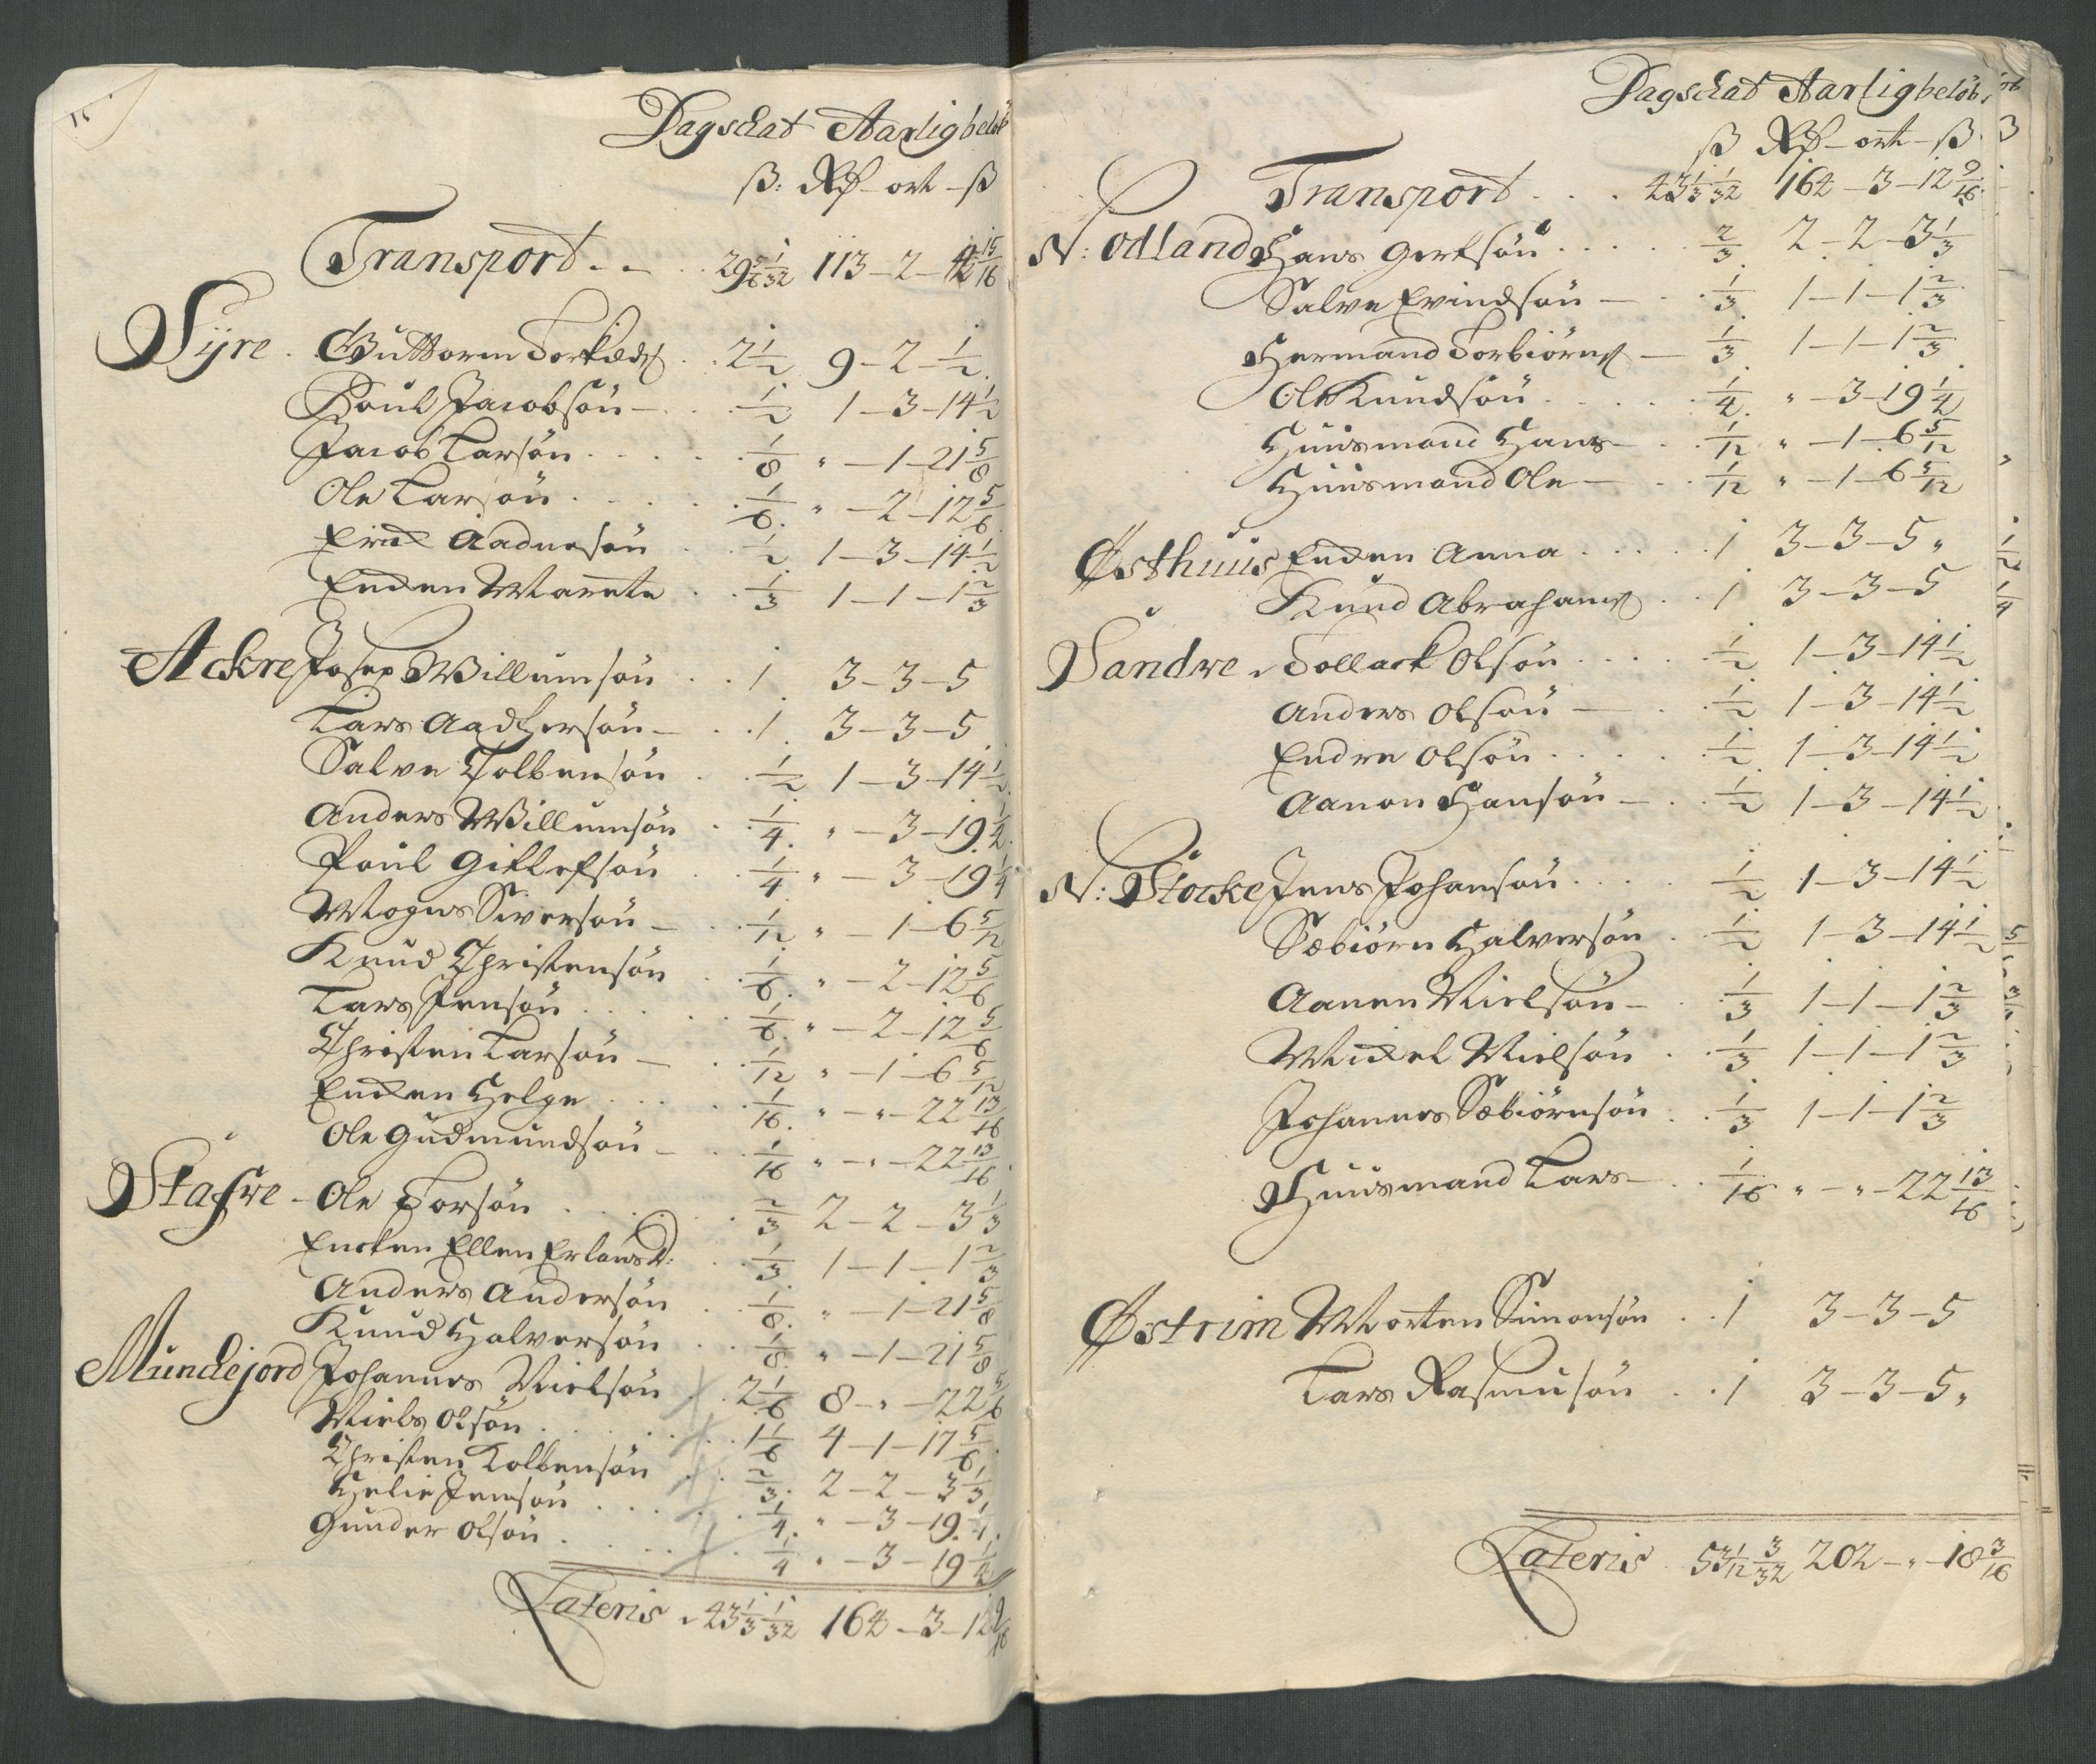 Dagschat Aarligbeløb
ß: Rd - ort - ß
Transport . . 29 5/6 1/32 113 - 2 - 15/16
Syre . Guttorm Torkeds: . . 2 1/2 9 - 2 - 1/2
Poul Jacobsøn . . 1/2 1 - 3 - 14 1/2
Jacob Larsøn . . . 1/8 " - 1 - 21 5/8
Ole Larsøn . . . 1/6 " - 2 - 12 5/6
Erick Aadnesøn . . 1/2 1 - 3 - 14 1/2
Encken Marrete . . 1/3 1 - 1 - 1 2/3
Ackre Josep Willumsøn . . 1 3 - 3 - 5
Lars Aadtersøn . . 1 3 - 3 - 5
Salve Tolbensøn . . 1/2 1 - 3 - 14 1/2
Anders Willumsøn . . 1/4 " - 3 - 19 1/4
Poul Gitlefsøn . . 1/4 " - 3 - 19 1/4
Mogens Siversøn . . 1/12 " - 1 - 6 5/12
Knud Christensøn . . 1/6 " - 2 - 12 5/6
Lars Jensøn . . . 1/6 " - 2 - 12 5/6
Christen Larsøn . . 1/12 " - 1 - 6 5/12
Encken Helge . . . 1/16 " - " - 22 13/16
Ole Gudmundsøn . . 1/16 " - " - 22 13/16
Stafre - Ole Torsøn . . . 2/3 2 - 2 - 3 1/3
Encken Ellen Erlands d: . . 1/3 1 - 1 - 1 2/3
Anders Andersøn . . 1/8 " - 1 - 21 5/8
Knud Halversøn . . 1/8 " - 1 - 21 5/8
Munckejord Johannes Nielsøn . 2 1/6 8 - " - 22 5/6
Niels Olsøn . . . 1 1/6 4 - 1 - 17 5/6
Christen Tolbensøn . . 2/3 2 - 2 - 3 1/3
Helie Jensøn . . . 1/4 " - 3 - 19 1/4
Gunder Olsøn . . . 1/4 " - 3 - 19 1/4
Lateris . 43 1/3 1/32 164 - 3 - 12 9/16
Dagschat Aarligbeløb
ß Rd - ort - ß
Transport . . . 43 1/3 1/32 164 - 3 - 12 9/16
N: Odland Hans Gertsøn . . . 2/3 2 - 2 - 3 1/3
Salve Evindsøn . . 1/3 1 - 1 - 1 2/3
Hermand Torbiørns: 1/3 1 - 1 - 1 2/3
Ole Knudsøn . . . 1/4 " - 3 - 19 1/4
Huusmand Hans . . 1/12 " - 1 - 6 5/12
Huusmand Ole . . 1/12 " - 1 - 6 5/12
Østhuus Encken Anna . . . 1 3 - 3 - 5 "
Knud Abrahams: . . 1 3 - 3 - 5
Sandve . Tollack Olsøn . . . 1/2 1 - 3 - 14 1/2
Anders Olsøn . . 1/2 1 - 3 - 14 1/2
Endre Olsøn . . . 1/2 1 - 3 - 14 1/2
Aanon Hansøn . . 1/2 1 - 3 - 14 1/2
N: Stocke Jens Johansøn . . . 1/2 1 - 3 - 14 1/2
Sæbiørn Halversøn . . 1/2 1 - 3 - 14 1/2
Aanen Nielsøn . . 1/3 1 - 1 - 1 2/3
Mickel Nielsøn . . 1/3 1 - 1 - 1 2/3
Johannes Sæbiørnsøn . . 1/3 1 - 1 - 1 2/3
Huusmand Lars . . 1/16 " - " - 22 13/16
Østrim Morten Simonsøn . . 1 3 - 3 - 5
Lars Rasmusøn . . 1 3 - 3 - 5 "
Lateris 53 1/12 3/32 202 - " - 18 3/16